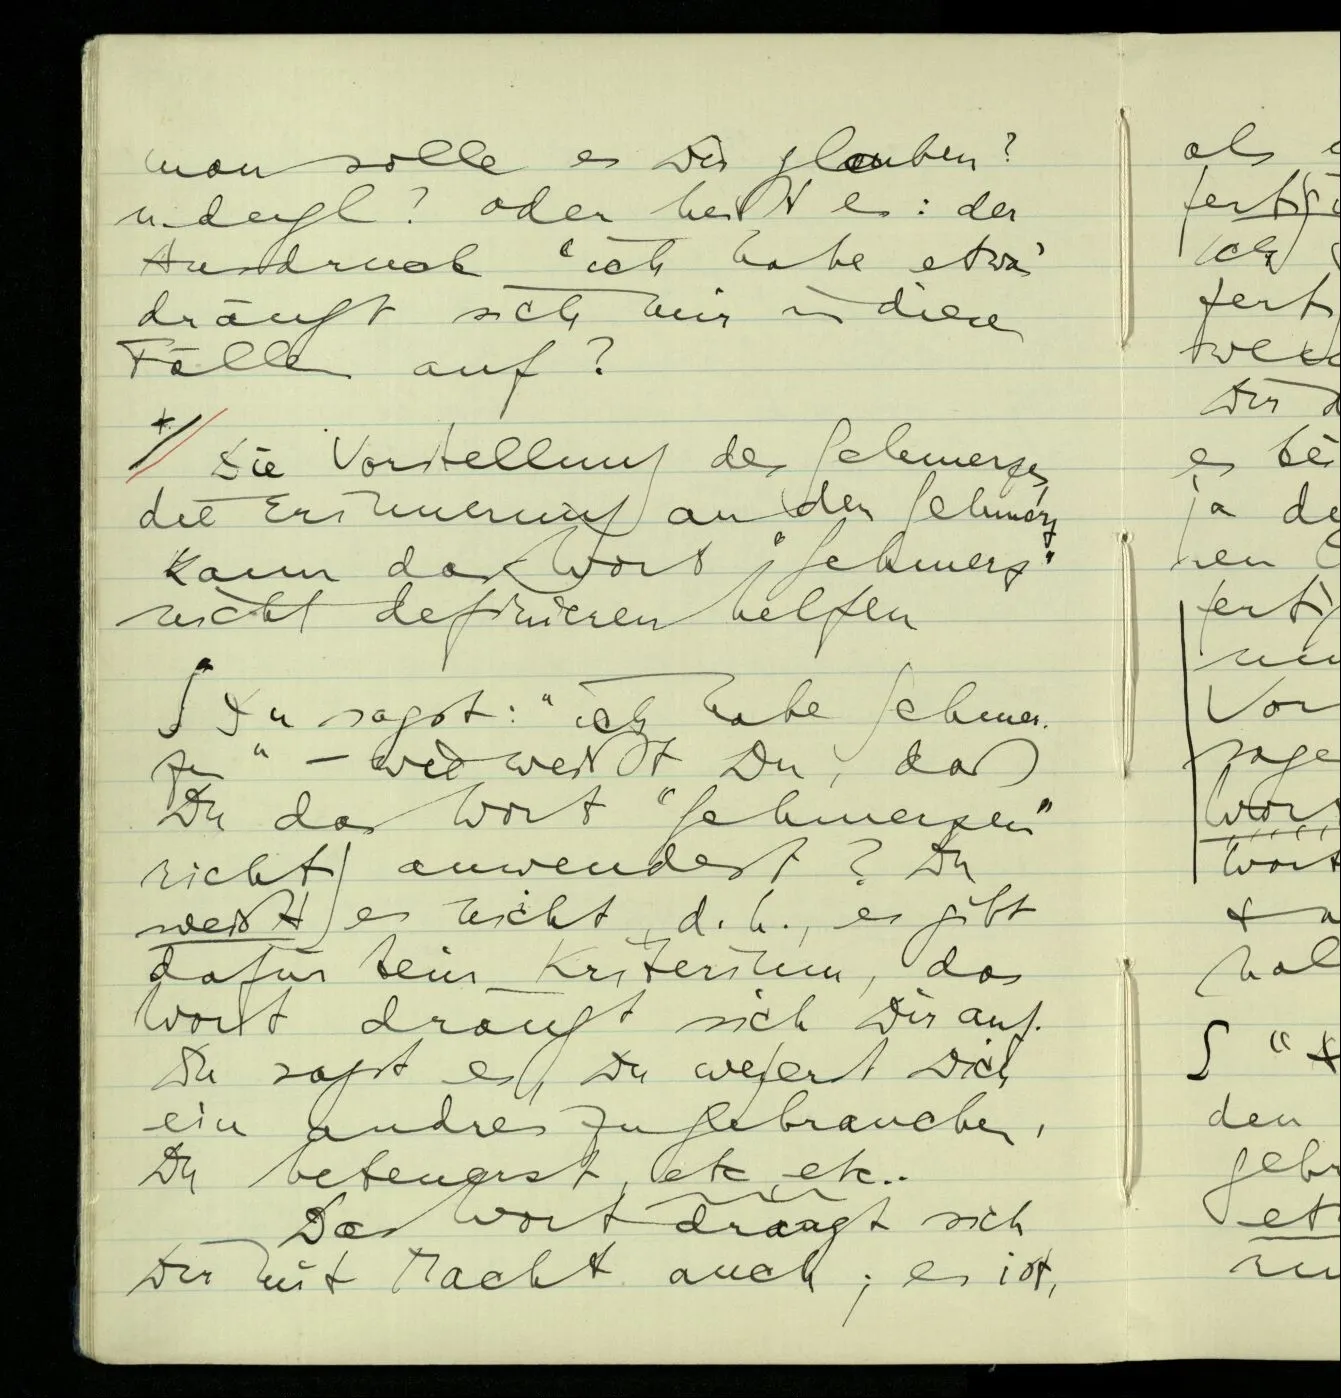 man solle es Dir glauben?
u. dergl? oder heißt es: der
Ausdruck "ich habe etwas"
drängt sich mir in diesen
Fällen auf?
Die Vorstellung des Schmerzes,
die Erinnerung an den Schmerz
kann das Wort "Schmerz"
nicht definieren helfen
∫ Du sagst: "ich habe Schmer-
zen" – wie weißt Du, daß
Du das Wort "Schmerzen"
richtig anwendest? Du
weißt es nicht, d.h., es gibt
dafür kein Kriterium, das
Wort drängt sich Dir auf.
Du sagst es, Du weigerst Dich
ein andres zu gebrauchen,
Du beteuerst, etc etc..
Das Wort drängt sich
Dir mit Macht auch; es ist,
als
ich
Dir
es
ja de
nen
Vor
sage
Wort
Wort
∫ "
den
gebr